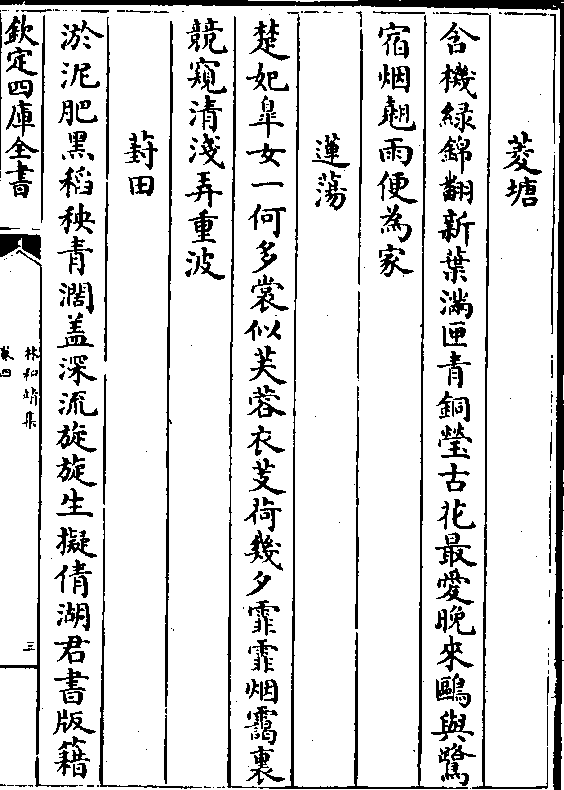 菱塘
含機緑錦翻新葉滿匣青銅瑩古花最愛晚來鷗與鷺
宿烟翹雨便為家
蓮蕩
楚妃臯女一何多裳似芙蓉衣芰荷幾夕霏霏烟靄裏
競窺清淺弄重波
葑田
淤泥肥黑稻秧青濶盖深流旋旋生擬倩湖君書版籍
欽定四庫全書
林和靖集
卷四
三